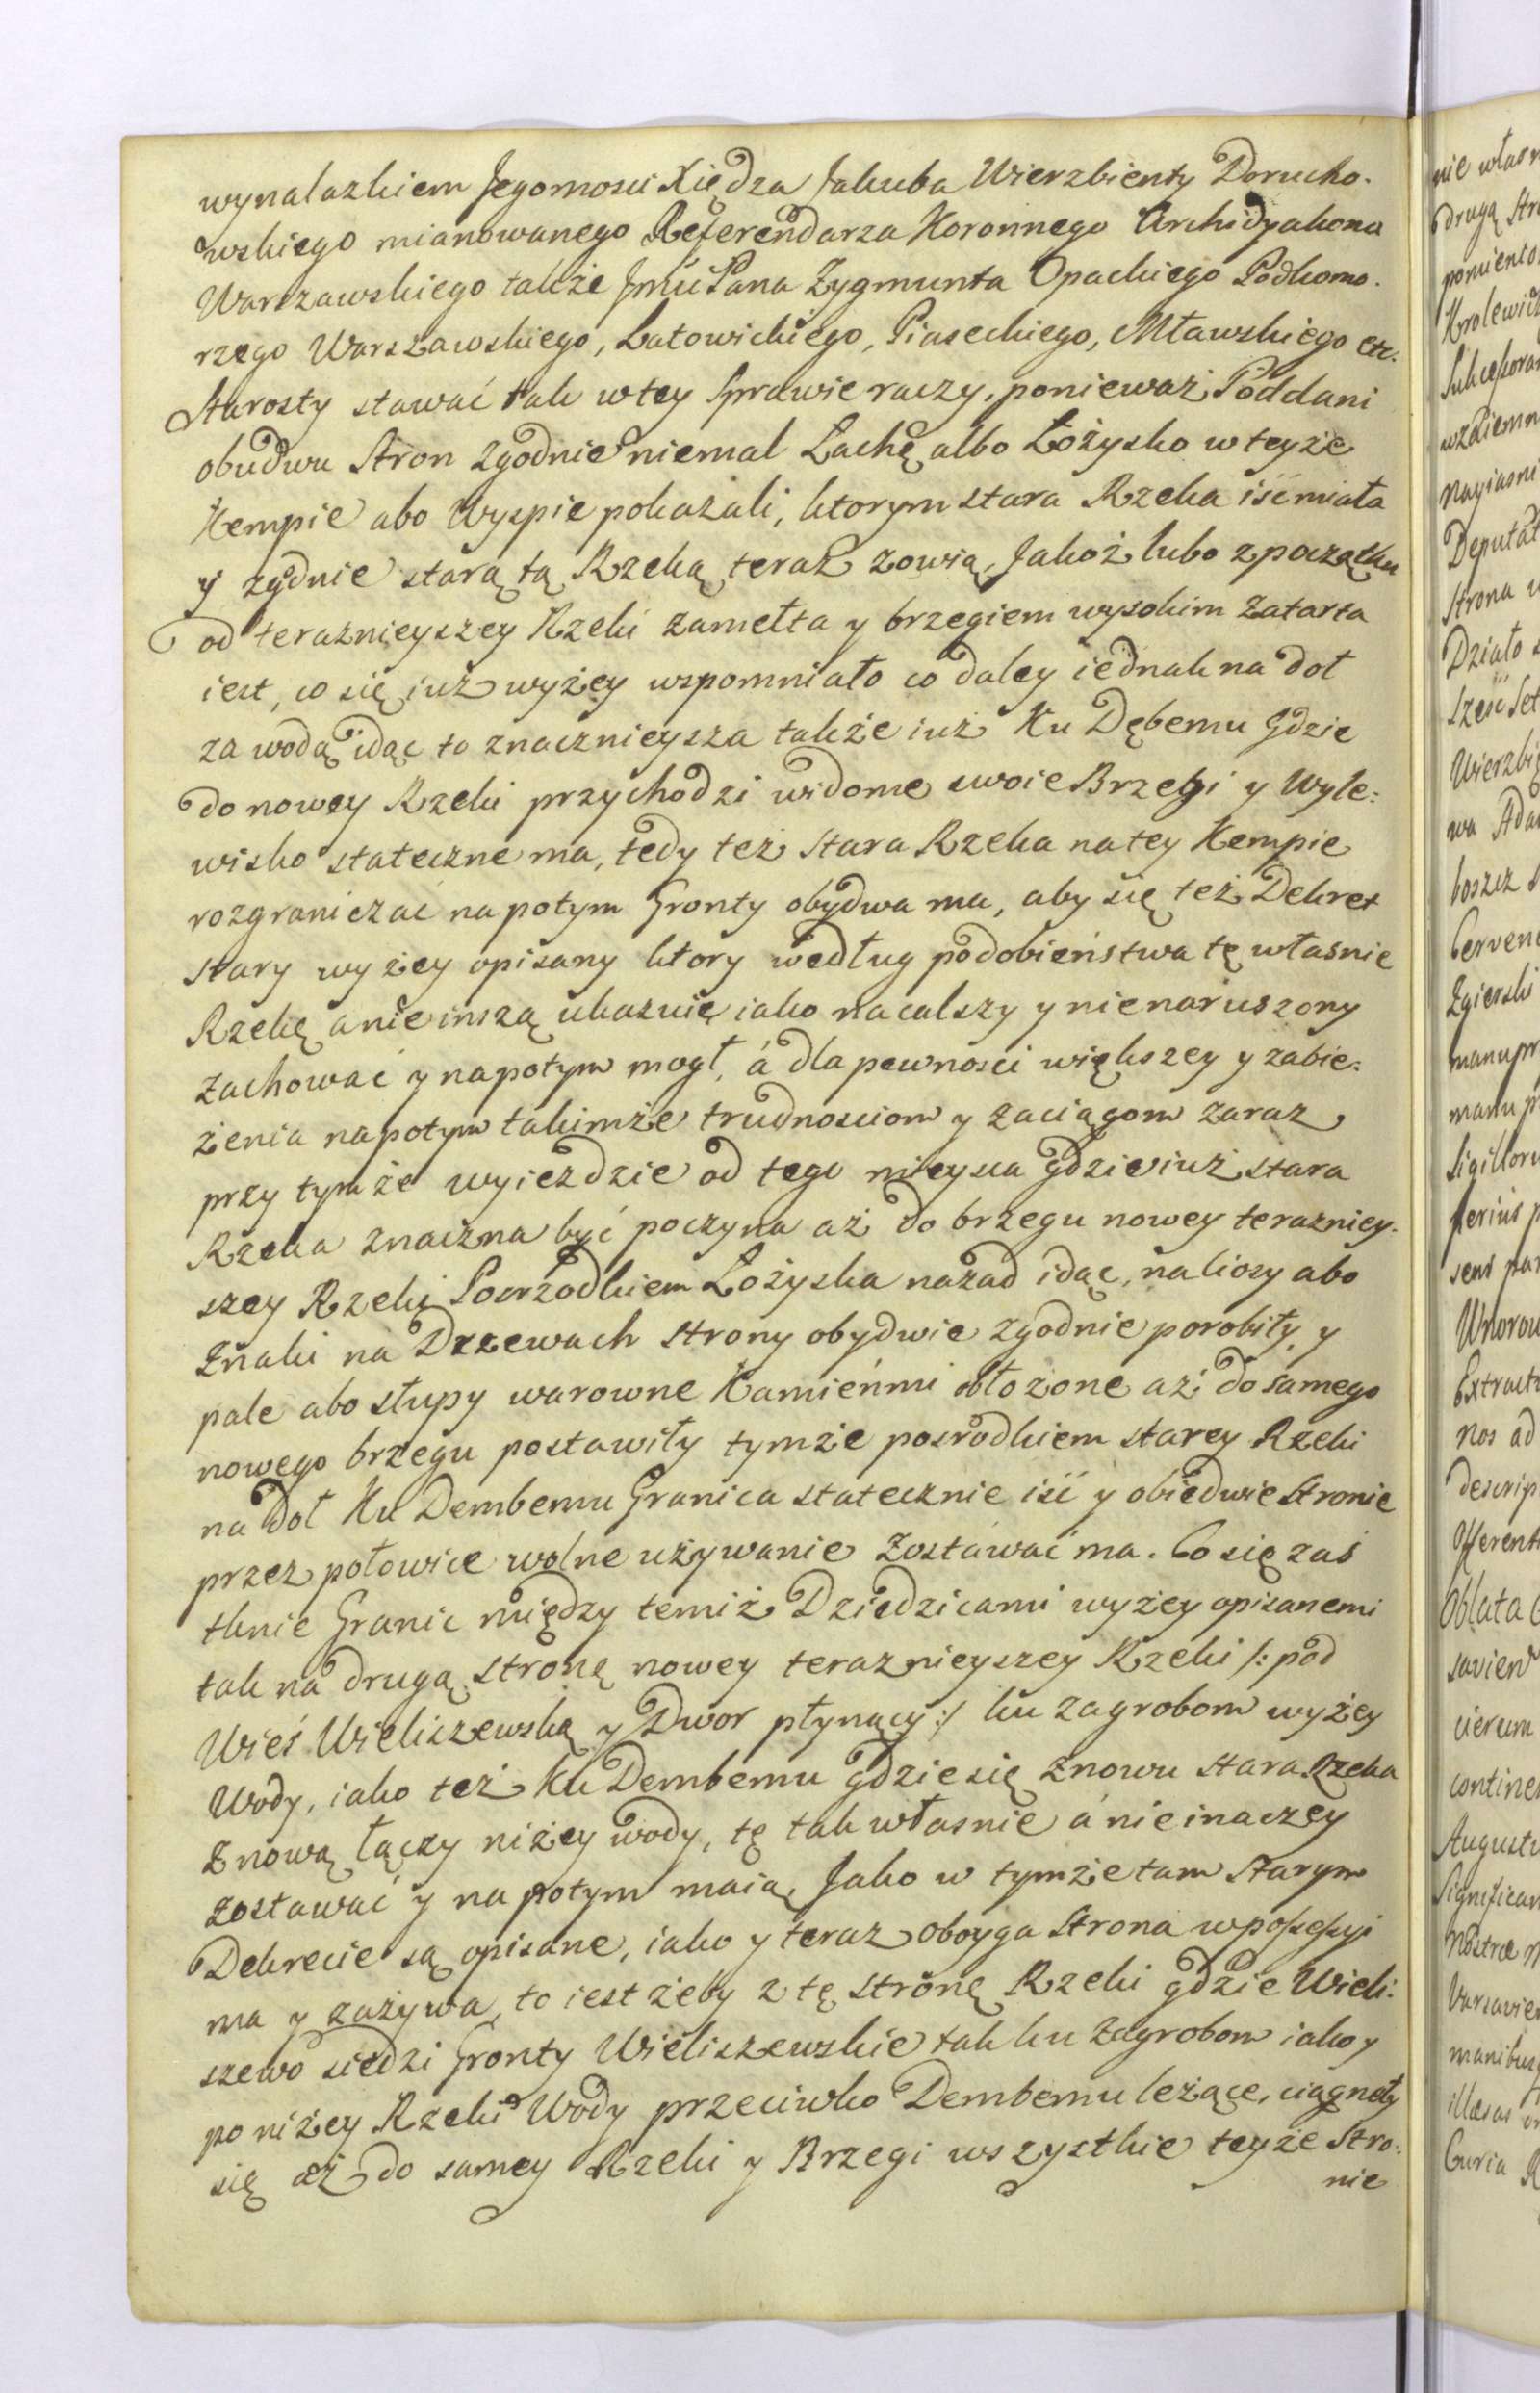 wynalazkiem Jegomosci Xiędza Jakuba Wierzbienty Dorucho-
wskiego mianowanego Referendarza Koronnego Archidyakona
Warszawskiego także Jmći Pana Zygmunta Opackiego Podkomo-
rzego Warszawskiego, Latowickiego, Piaseckiego, Mławskiego etc.
Starosty stawać tak w tey Sprawie raczy, ponieważ Poddani
obudwu Stron zgodnie niemal Łachę albo Łożysko w teyże
Kempie abo Wyspie pokazali, ktorym stara Rzeka iść miała
y zgdnie starą tą Rzeką teraz zowią, Jakoż lubo z początku
od teraznieyszey Rzeki zamełta y brzegiem wysokim zatarta
iest, co się iuż wyżey wspomniało co daley iednak na doł
za wodą idąc to znacznieysza także iuż Ku Dębemu Gdzie
do nowey Rzeki przychodzi widome swoie Brzegi y Wyle=
wisko stateczne ma, tedy też stara Rzeka na tey Kempie
rozgraniczać napotym Gronty obydwa ma, aby się też Dekret
stary wyżey opisany ktory według podobieństwa tę właśnie
Rzekę a nie inszą ukazuię iako nacalszy y nienaruszony
zachować y napotym mogł, á dla pewnosci większey y zabie=
żenia napotym takimże trudnosciom y zaciągom zaraz
przy tymże wyiezdzie od tego mieysca gdzie iuż stara
Rzeka znaczna być poczyna aż do brzegu nowey terazniey-
szey Rzeki Posrzodkiem Łożyska nazad idąc, naciosy abo
Znaki na Drzewach strony obydwie zgodnie porobiły, y
pale abo słupy warowne Kamieńmi obłożone aż do samego
nowego brzegu postawiły tymże posrodkiem starey Rzeki
na doł Ku Dembemu Granica statecznie iść y obiedwie Stronie
przez połowice wolne używanie zostawać ma. Co się zaś
tknie Granic między temiż Dziedzicami wyżey opisanemi
tak na drugą stronę nowey teraznieyszey Rzeki /: pod
Wieś Wieliszewską y Dwor płynący :/ ku zagrobom wyżey
Wody, iako też Ku Dembemu gdzie się znowu stara Rzeka
z nową łączy niżey wody, tę tak własnie á nie inaczey
zostawać y na potym maią, Jako w tymże tam Starym
Dekrecie są opisane, iako y teraz oboyga Strona w possessyi
ma y zażywa, to iest żeby z tę stronę Rzeki gdzie Wieli=
szewo siedzi Gronty Wieliszewskie tak ku Zagrobom iako y
po niżey Rzeki Wody przeciwko Dembemu leżące, ciągneły
się aż do samey Rzeki y Brzegi wszystkie teyże Stro=
nie